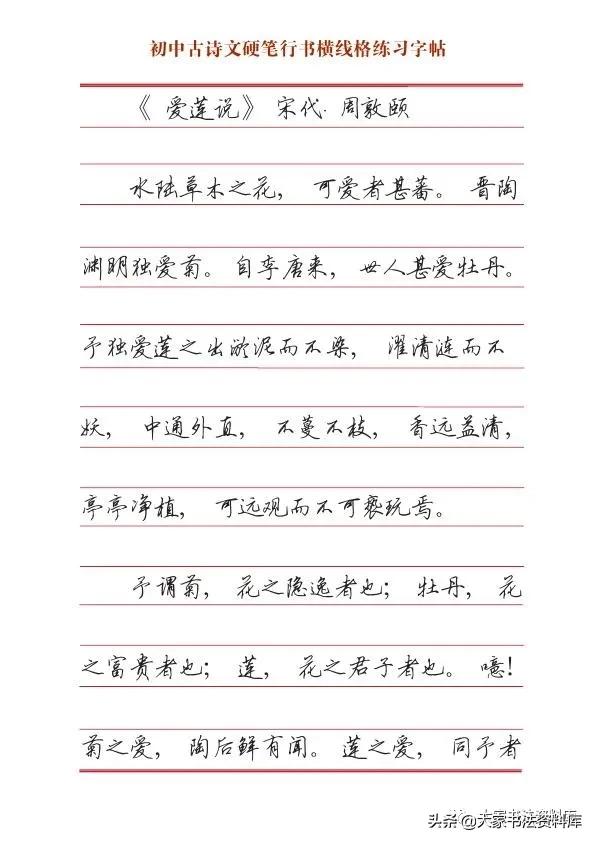 初中古诗文硬笔行书横线格练习字帖
《 爱莲说》 宋代· 周敦颐
水陆草木之花， 可爱者甚蕃。 晋陶
渊明独爱菊。 自李唐来， 世人甚爱牡丹。
予独爱莲之出淤泥而不染， 濯清涟而不
妖， 中通外直， 不蔓不枝， 香远益清，
亭亭净植， 可远观而不可亵玩焉。
予谓菊， 花之隐逸者也； 牡丹， 花
之富贵者也； 莲， 花之君子者也。 噫！
菊之爱， 陶后鲜有闻。 莲之爱， 同予者
头条@大家书法资料库